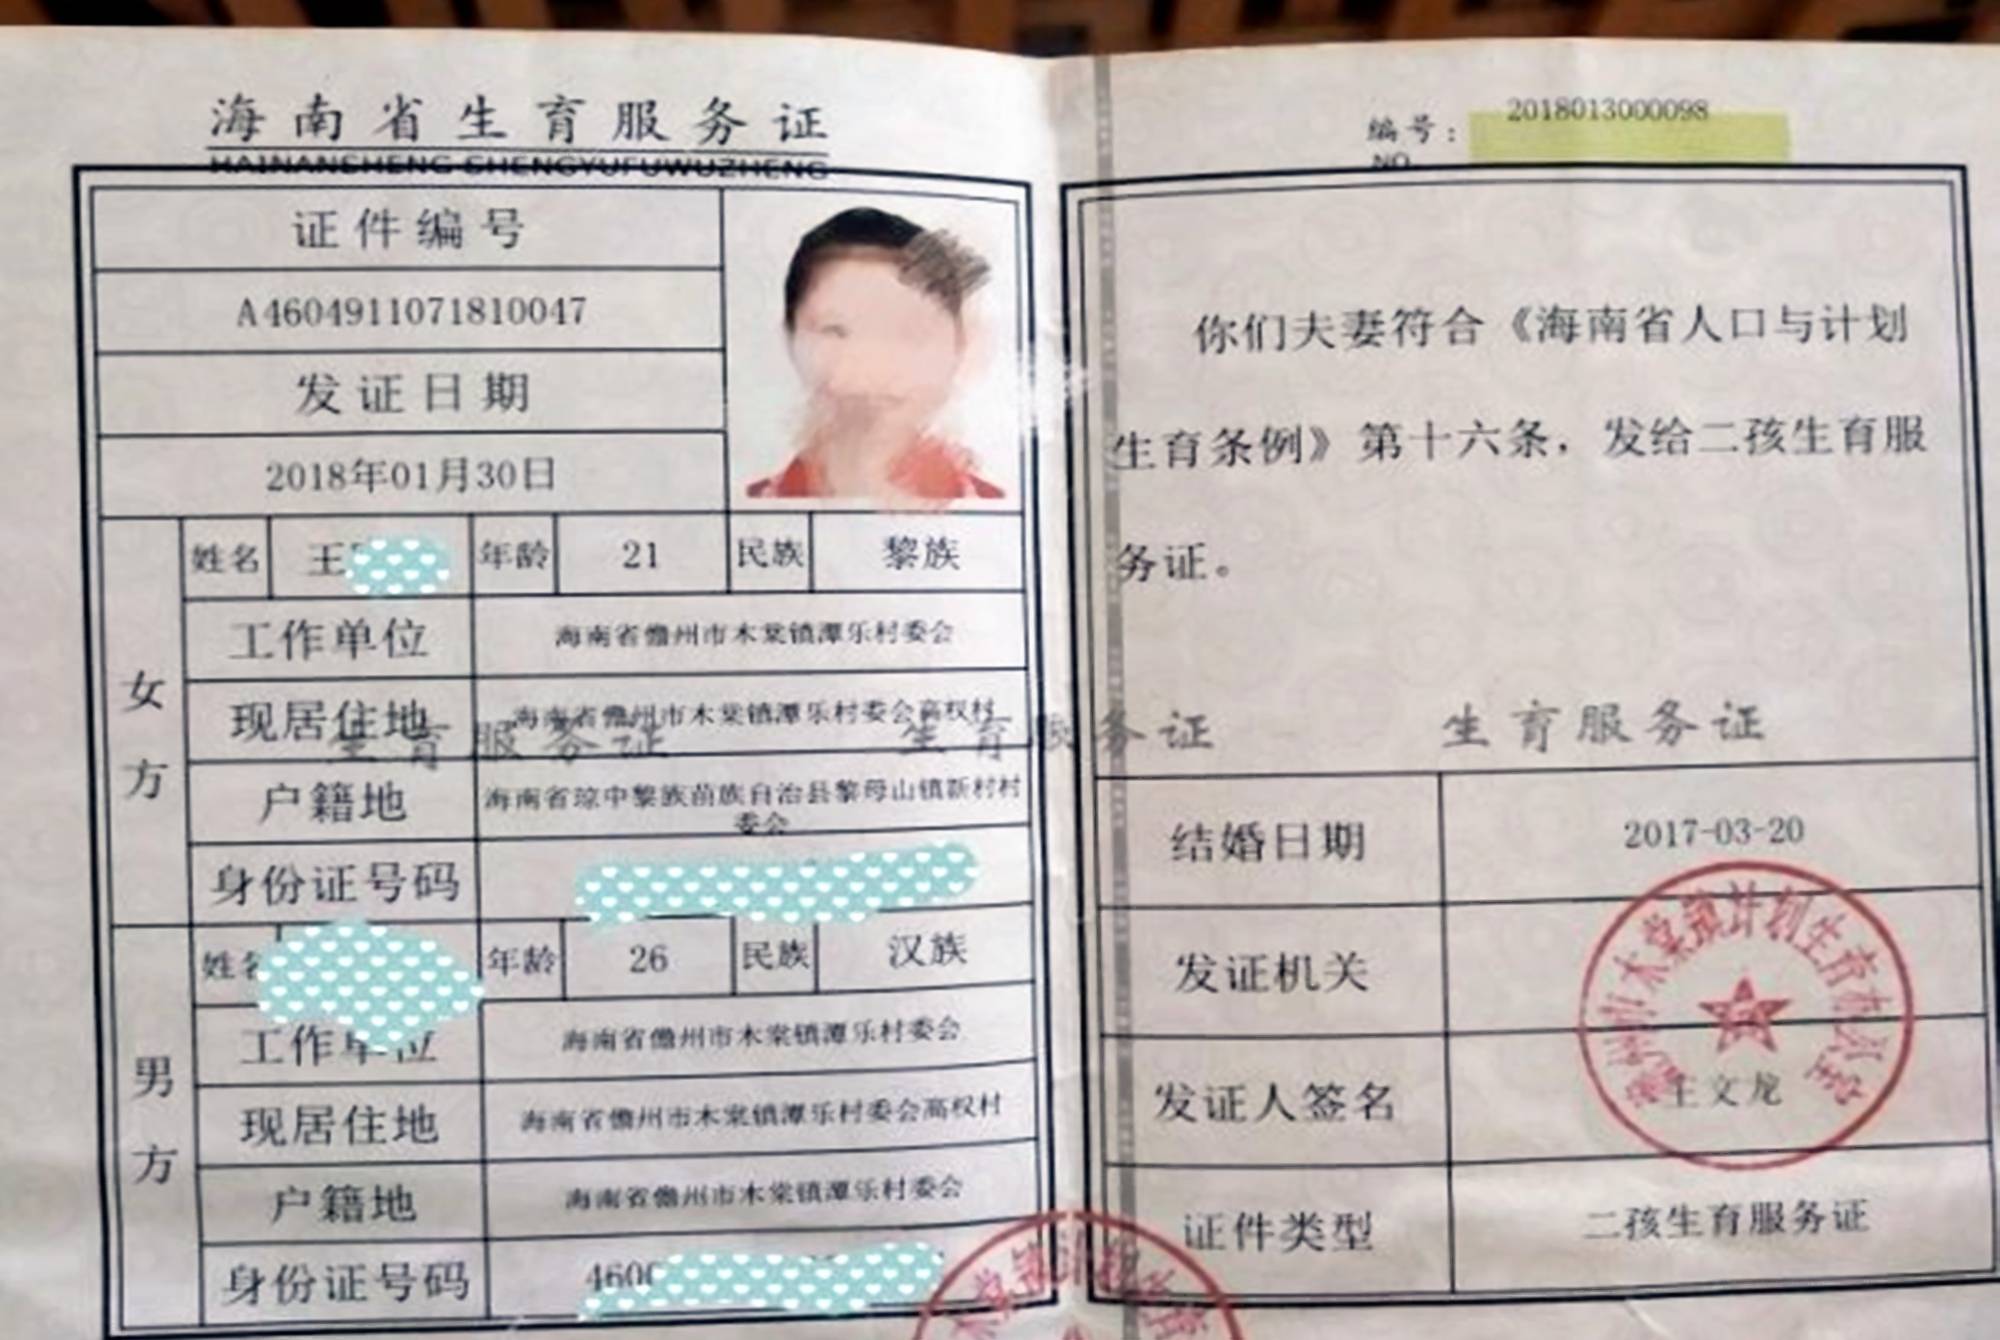 海南省生育服务证
HAINANSHENG SHENGYUFUWUZHENG
证件编号
A4604911071810047
发证日期
2018年01月30日
女方
姓名 王 年龄 21 民族 黎族
工作单位 海南省儋州市木棠镇潭乐村委会
现居住地 海南省儋州市木棠镇潭乐村委会高权村
户籍地 海南省琼中黎族苗族自治县黎母山镇新村村
委会
身份证号码
男方
姓名 年龄 26 民族 汉族
工作单位 海南省儋州市木棠镇潭乐村委会
现居住地 海南省儋州市木棠镇潭乐村委会高权村
户籍地 海南省儋州市木棠镇潭乐村委会
身份证号码 460
编号: 2018013000098
NO
你们夫妻符合《海南省人口与计划
生育条例》第十六条，发给二孩生育服
务证。
生育服务证 生育服务证 生育服务证
结婚日期 2017-03-20
发证机关
儋州市木棠镇计划生育办公室
发证人签名 王文龙
证件类型 二孩生育服务证
木棠镇计划生育